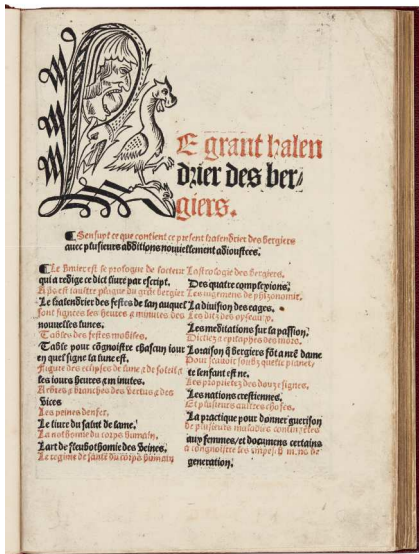 LE grant kalen
drier des ber/
giers.
Sensuyt ce que contient ce present kalendrier des bergiers
auec plusieurs additions nouuellement adioustees.
Le premier est le prologue de lacteur
qui a redige ce dict liure par escript.
Le kalendrier des festes de lan auquel
sont signees les heures & minutes des
nouuelles lunes.
Tables des festes mobiles.
Table pour cognoistre chascun iour
en quel signe la lune est.
Figure des eclipses de lune & de soleil &
les iours heures & minutes.
Arbres & branches des vertus & des
vices
Les peines denfer.
Le liure du salut de lame.
La nothomie du corps humain.
Lart de fleubothomie des veines.
Le regime de sante du corps humain
Lastrologie des bergiers.
Des quatre complexyions.
Les iugemens de phizonomie.
La diuision des eages.
Les ditz des oyseaux.
Les meditations sur la passion.
Dictiez & epitaphes des mors.
Loraison q̃ bergiers fõt a nrẽ dame
Pour scauoir soubz quelle planet/
te lenfant est ne.
Les proprietez des douze signes.
Les nations crestiennes.
Et plusieurs aultres choses.
La practique pour donner guerison
de plusieurs maladies
aux femmes/et documens certains
a congnoistre les
generation.